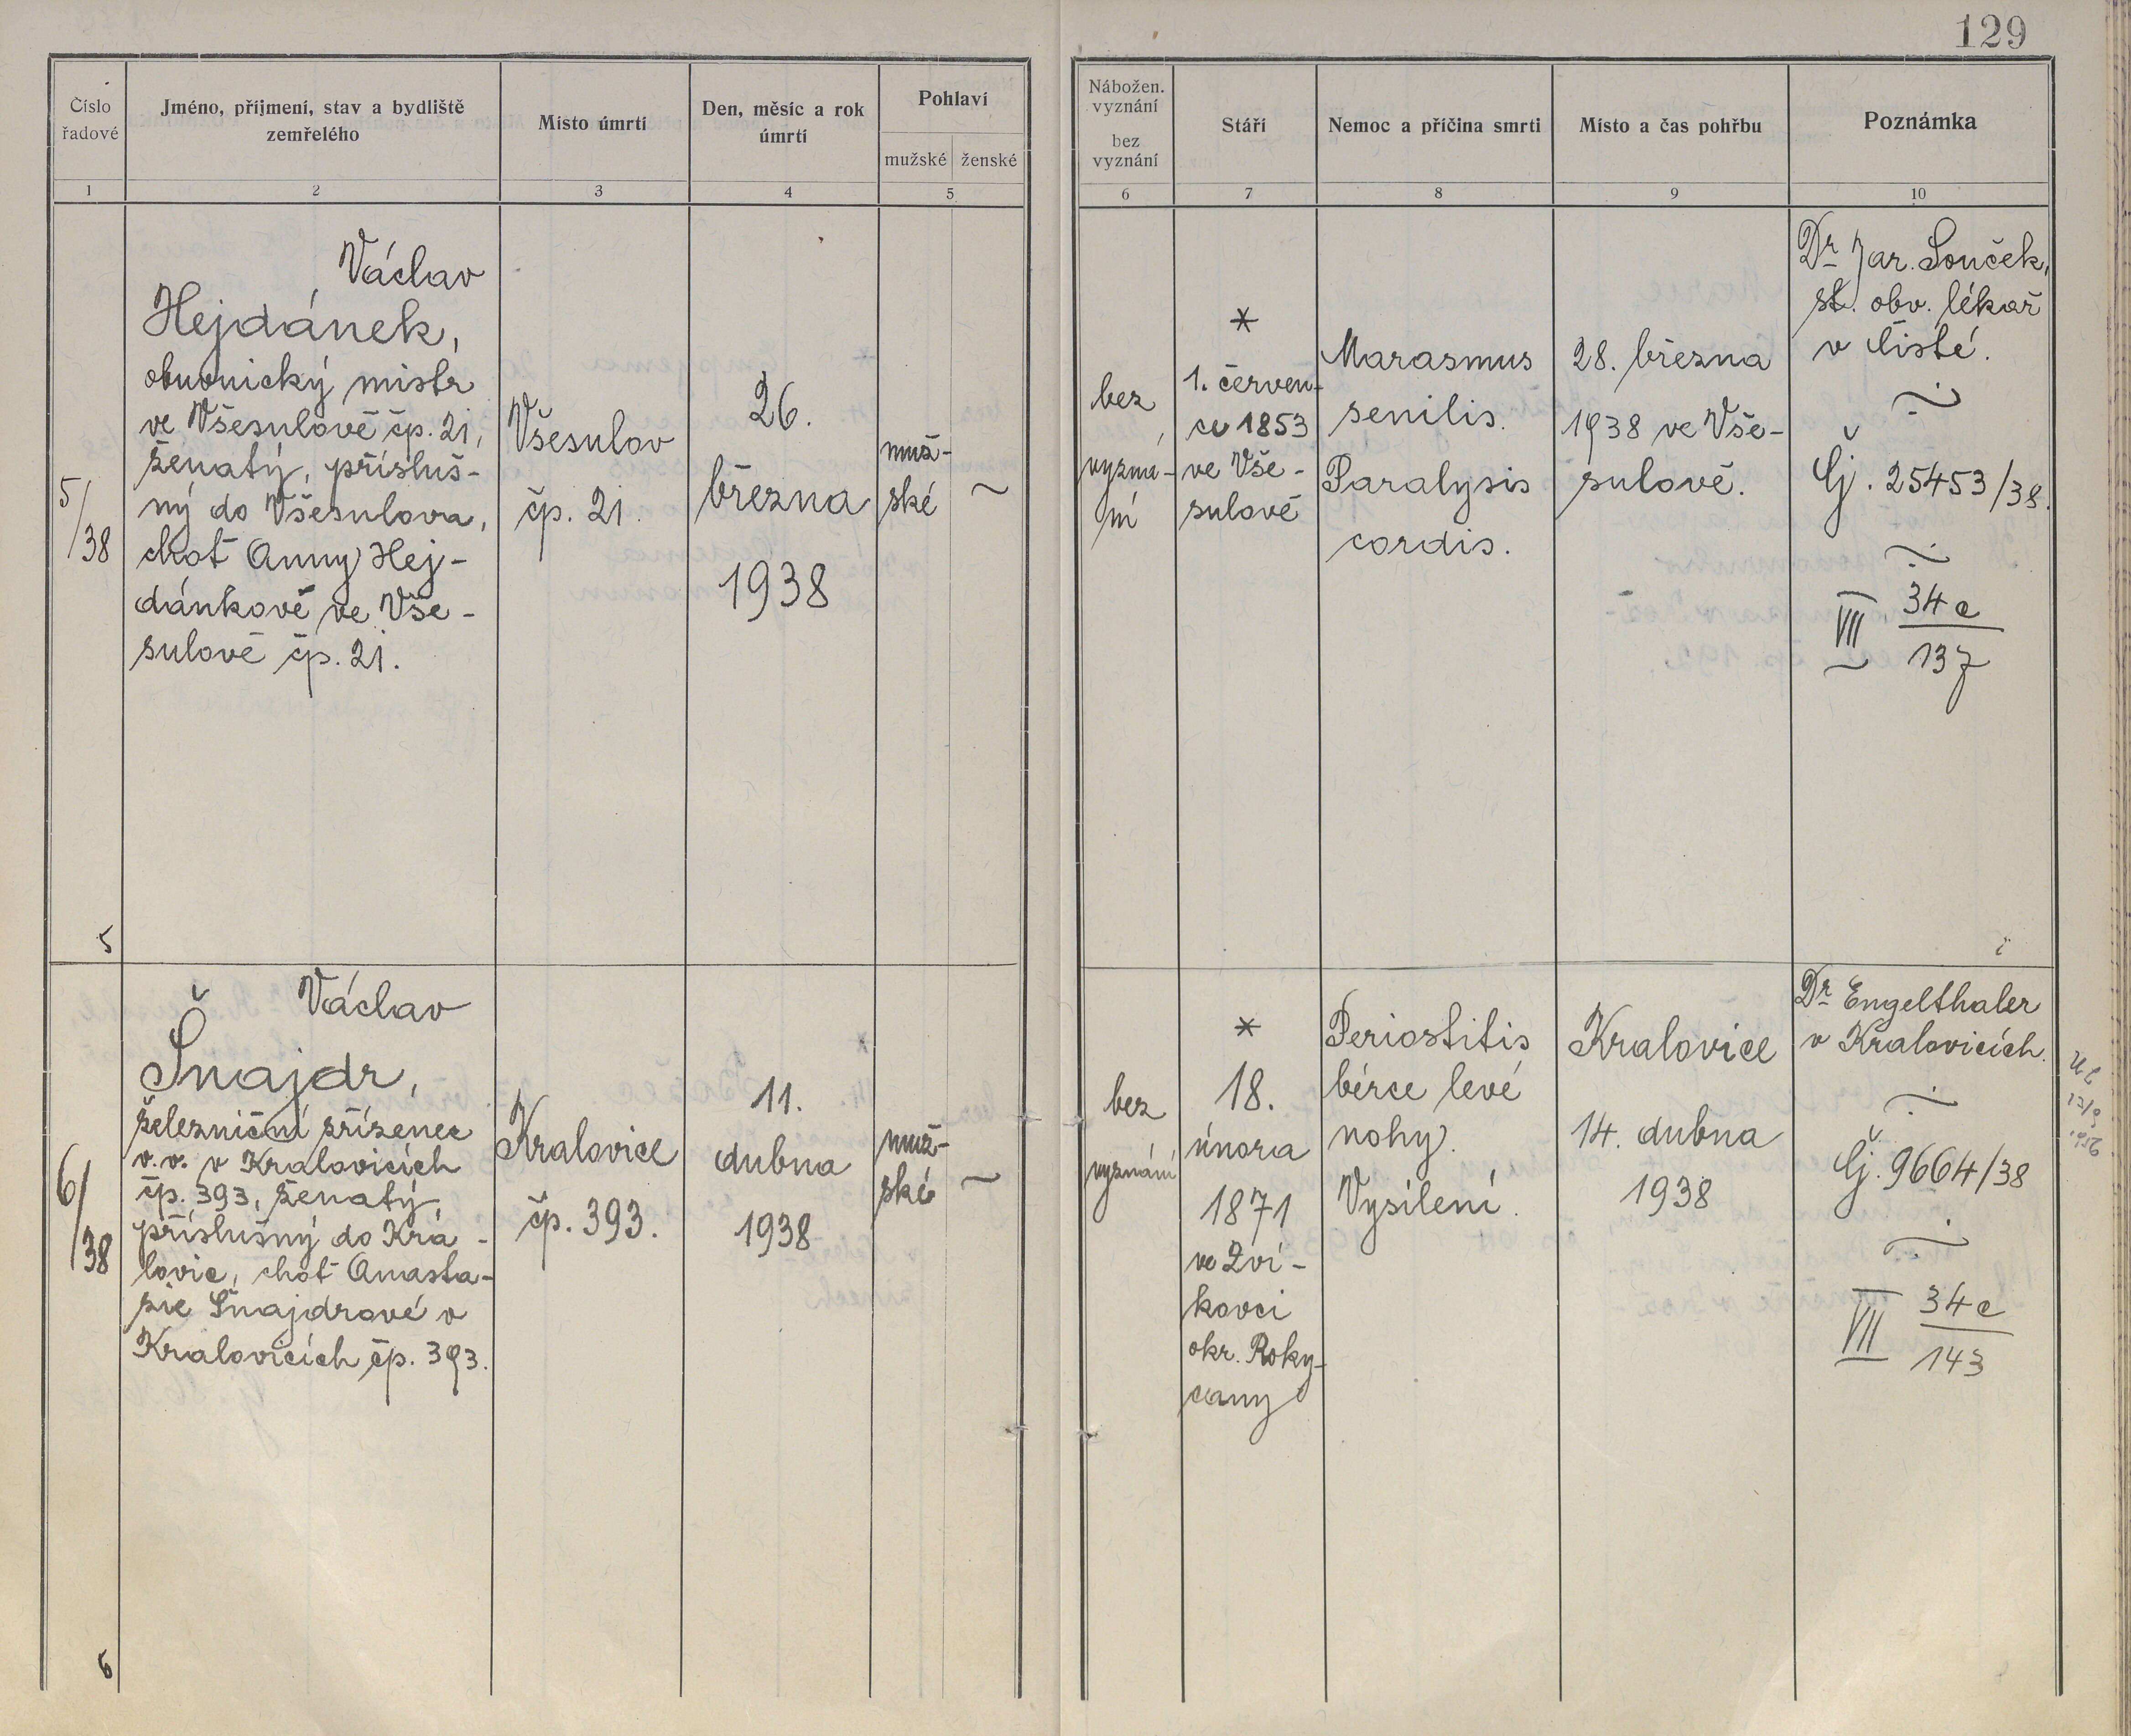 129
Číslo
řadové
Jméno, příjmení, stav a bydliště
zemřelého
Místo úmrtí
Den, měsíc a rok
úmrtí
Pohlaví
mužské
ženské
Nábožen.
vyznání
bez
vyznání
Stáří
Nemoc a příčina smrti
Místo a čas pohřbu
Poznámka
1
2
3
4
5
6
7
8
9
10
5/38
Václav
Hejdánek,
obuvnický mistr
ve Všesulově čp. 21,
ženatý, přísluš-
ný do Všesulova,
choť Anny Hej-
dánkové ve Vše-
sulově čp. 21.
Všesulov
čp. 21.
26.
března
1938
muž-
ské
~
bez
vyzná-
ní
*
1. červen-
ce 1853
ve Vše-
sulově
Marasmus
senilis.
Paralysis
cordis.
28. března
1938 ve Vše-
sulově.
Dr Jar. Souček,
st. obv. lékař
v Čisté.
Čj. 25453/38.
VII 34c
137
5
6/38
Václav
Šnajdr,
železniční zřízenec
v.v. v Kralovicích
čp. 393, ženatý,
příslušný do Kra-
lovic, choť Anasta-
zie Šnajdrové v
Kralovicích čp. 393.
Kralovice
čp. 393.
11.
dubna
1938
muž-
ské
~
bez
vyznání
*
18.
února
1871
ve Zví-
kovci
okr. Roky-
cany
Periostitis
bérce levé
nohy.
Vysílení.
Kralovice
14. dubna
1938
Dr Engelthaler
v Kralovicích.
Čj. 9664/38
VII 34c
143
6